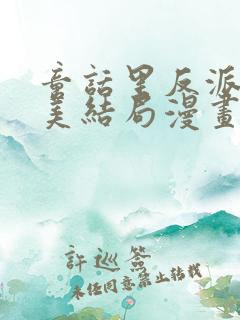 童話里反派
美結局漫畫
許巡簽
未经同意禁止转载